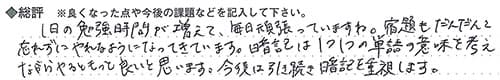 ◆総評 ※良くなった点や今後の課題などを記入して下さい。
1日の勉強時間が増えて、毎日頑張っていますね。宿題もだんだんと
忘れずにやれるようになってきています。暗記は1つ1つの単語の意味を考え
ながらやるともっと良いと思います。今後は引き続き暗記を重視します。